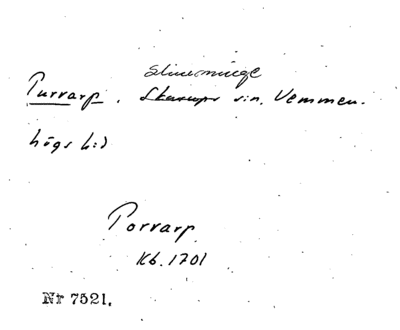 Slimminge
Purrarp. Skarups s:n. Vemmen-
högs h:d
Porrarp
Kb. 1701
Nr 7521.